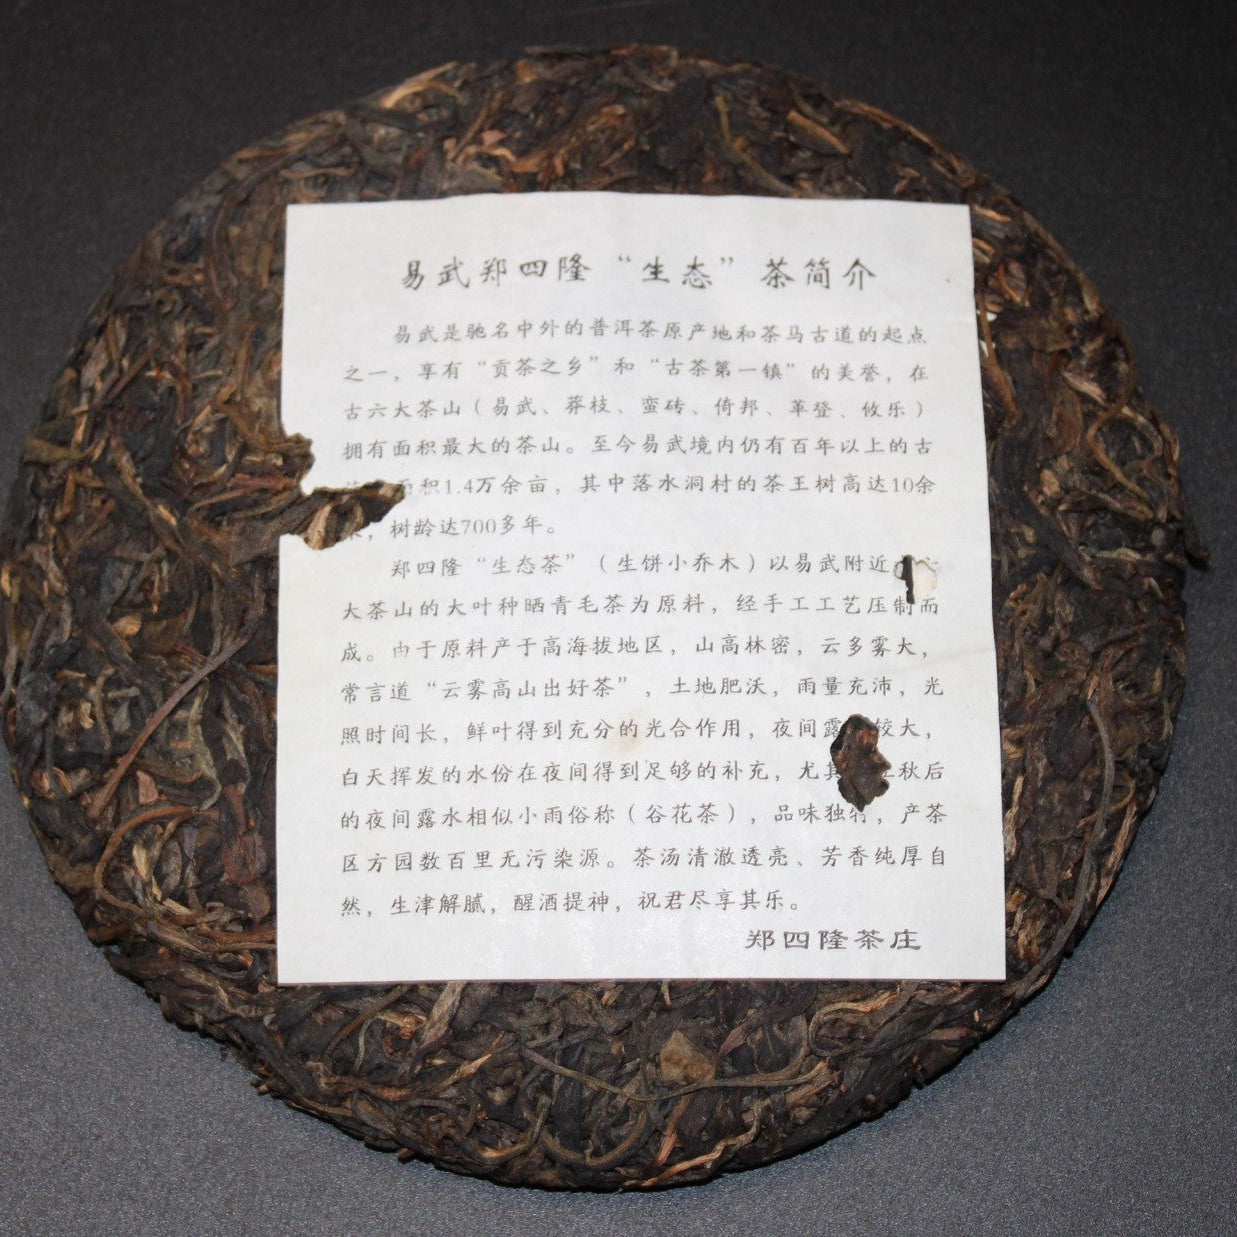 易武郑四隆“生态”茶简介
易武是驰名中外的普洱茶原产地和茶马古道的起点
之一，享有“贡茶之乡”和“古茶第一镇”的美誉，在
古六大茶山（易武、莽枝、蛮砖、倚邦、革登、攸乐）
拥有面积最大的茶山。至今易武境内仍有百年以上的古
面积1.4万余亩，其中落水洞村的茶王树高达10余
，树龄达700多年。
郑四隆“生态茶”（生饼小乔木）以易武附近
大茶山的大叶种晒青毛茶为原料，经手工工艺压制而
成。由于原料产于高海拔地区，山高林密，云多雾大，
常言道“云雾高山出好茶”，土地肥沃，雨量充沛，光
照时间长，鲜叶得到充分的光合作用，夜间露较大，
白天挥发的水份在夜间得到足够的补充，尤其秋后
的夜间露水相似小雨俗称（谷花茶），品味独特，产茶
区方园数百里无污染源。茶汤清澈透亮、芳香纯厚自
然，生津解腻，醒酒提神，祝君尽享其乐。
郑四隆茶庄